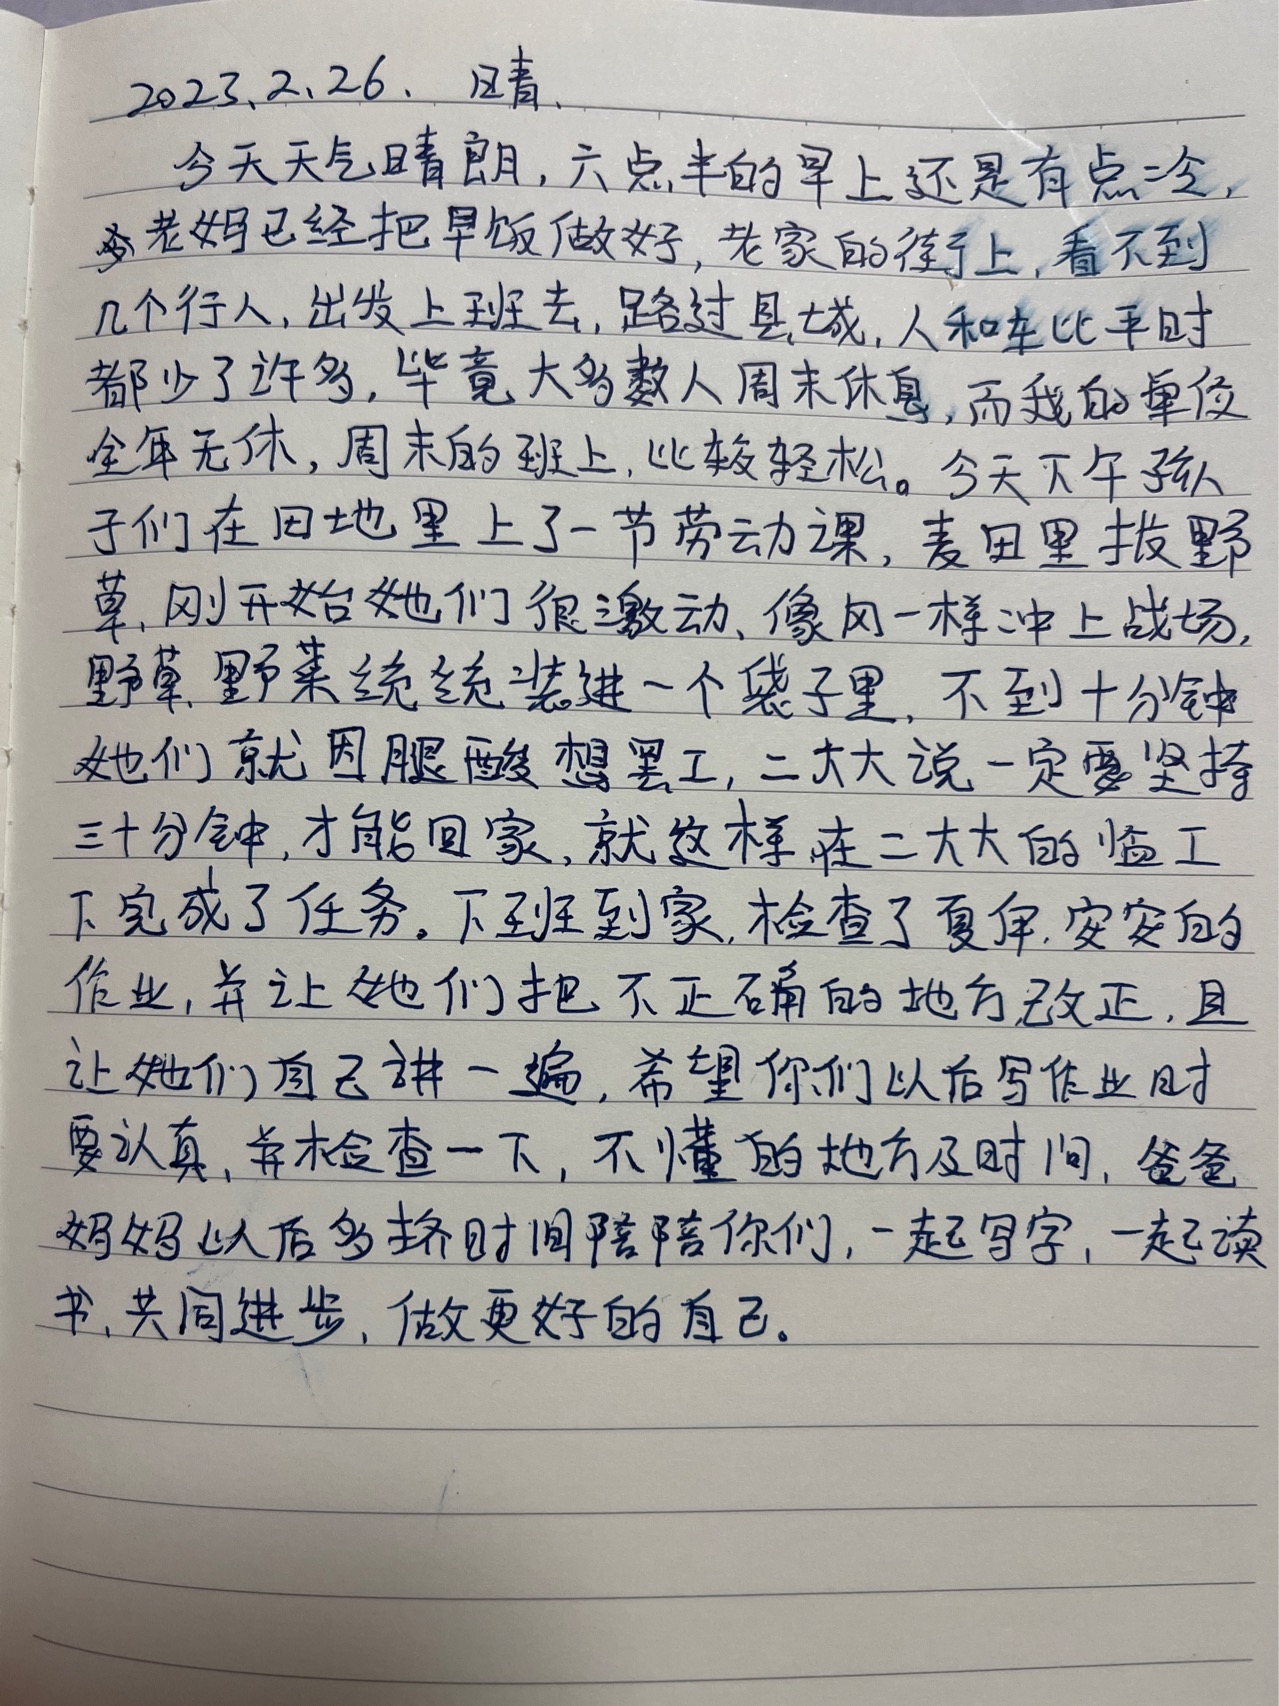 2023、2、26、 晴、
今天天气晴朗,六点半的早上还是有点冷,
老妈已经把早饭做好,老家的街上,看不到
几个行人,出发上班去,路过县城,人和车比平时
都少了许多,毕竟大多数人周末休息,而我的单位
全年无休,周末的班上,比较轻松。今天下午孩
子们在田地里上了一节劳动课,麦田里拔野
草,刚开始她们很激动、像风一样冲上战场,
野草、野菜统统装进一个袋子里,不到十分钟
她们就因腿酸想罢工,二大大说一定要坚持
三十分钟,才能回家,就这样,在二大大的监工
下完成了任务。下班到家,检查了夏伊、安安的
作业,并让她们把不正确的地方改正,且
让她们自己讲一遍,希望你们以后写作业时
要认真,并检查一下,不懂的地方及时问,爸爸
妈妈以后多挤时间陪陪你们,一起写字,一起读
书,共同进步,做更好的自己。